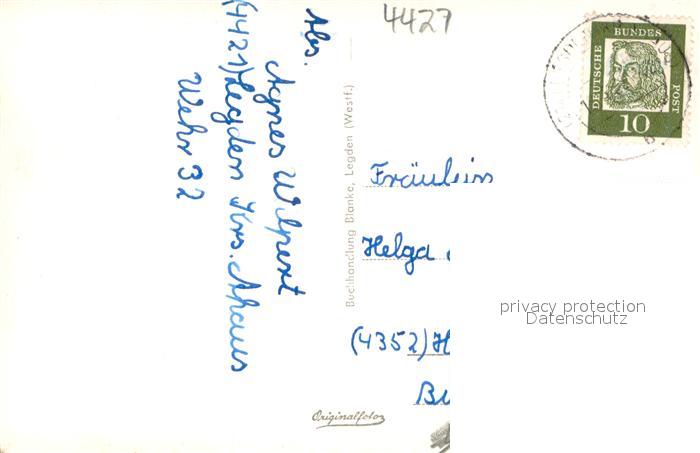 4427
Abs.
Agnes Wilpert
(4421) Legden Krs. Ahaus
Wehr 32
Buchhandlung Blanke, Legden (Westf.)
Originalfoto
DEUTSCHE BUNDES POST
10
Fräulein
Helga
(4352) H
Bu
privacy protection
Datenschutz